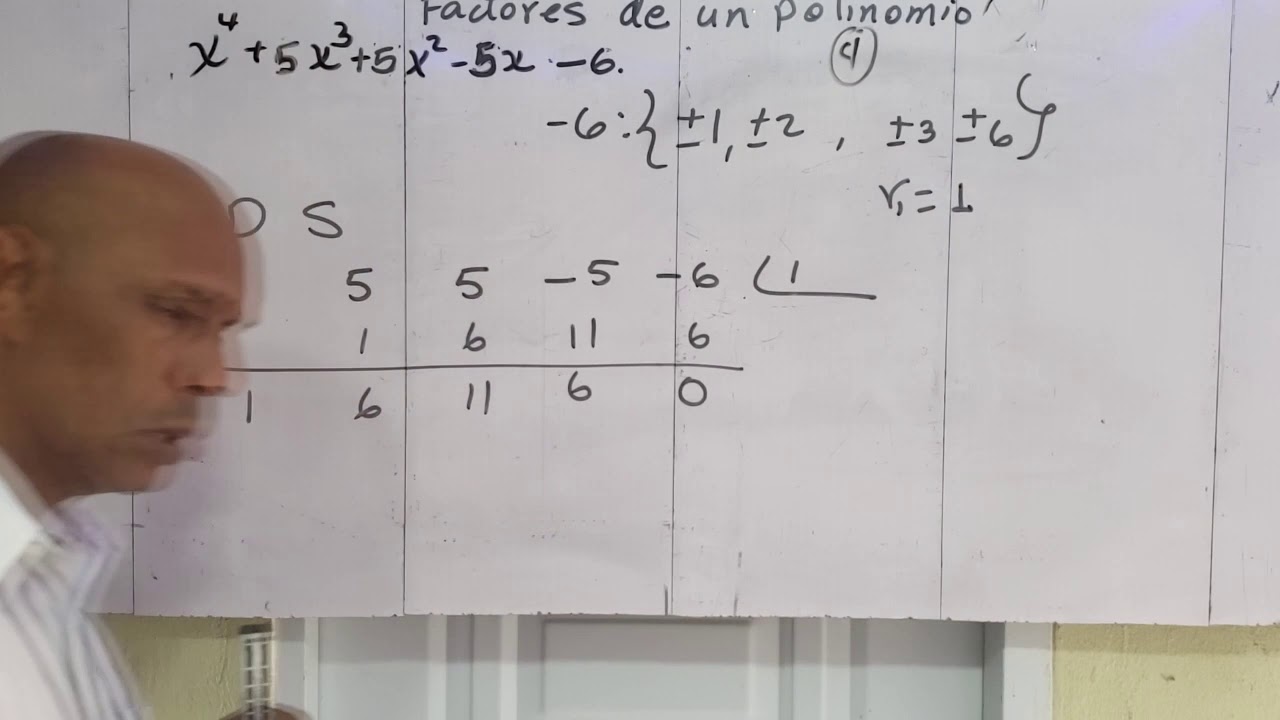 Factores de un polinomio
x⁴ + 5x³ + 5x² - 5x - 6.
④
-6 : { ±1, ±2 , ±3 ±6 }
r₁ = 1
D S
5 5 -5 -6 (1
1 6 11 6
1 6 11 6 0